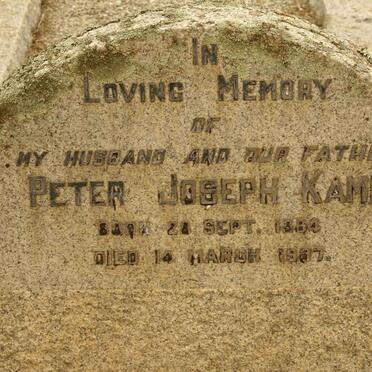 IN
LOVING MEMORY
OF
MY HUSBAND AND OUR FATHE
PETER JOSEPH KAM
BORN SEPT.
DIED 14 MARCH